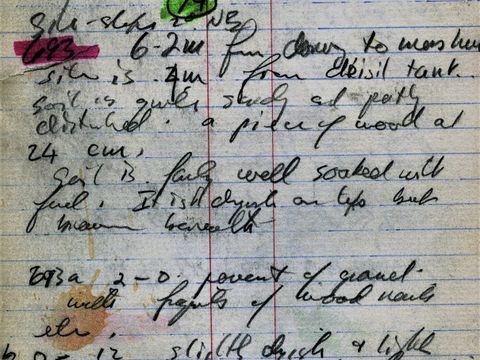 NE
693. 6.2m from doorway to
site is 4m from diesil tank.
soil is quite sandy and partly
disturbed. a piece of wood at
24 cm,
soil is fairly well soaked with
fuel. It is dryish on top but
brown beneath
693a 2-0. pavement of gravel.
with fragmts of wood nails
etc,
b 0-12 slightly dryish & light